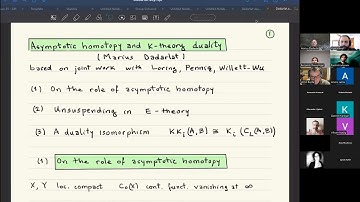 ①
Asymptotic homotopy and K-theory duality
(Marius Dadarlat)
based on joint work with Loring, Pennig, Willett-Wu
(1) On the role of asymptotic homotopy
(2) Unsuspending in E-theory
(3) A duality isomorphism KKᵢ(A,B) ≅ Kᵢ(C_L(A,B))
(1) On the role of asymptotic homotopy
X, Y loc. compact C₀(X) cont. funct. vanishing at ∞
A